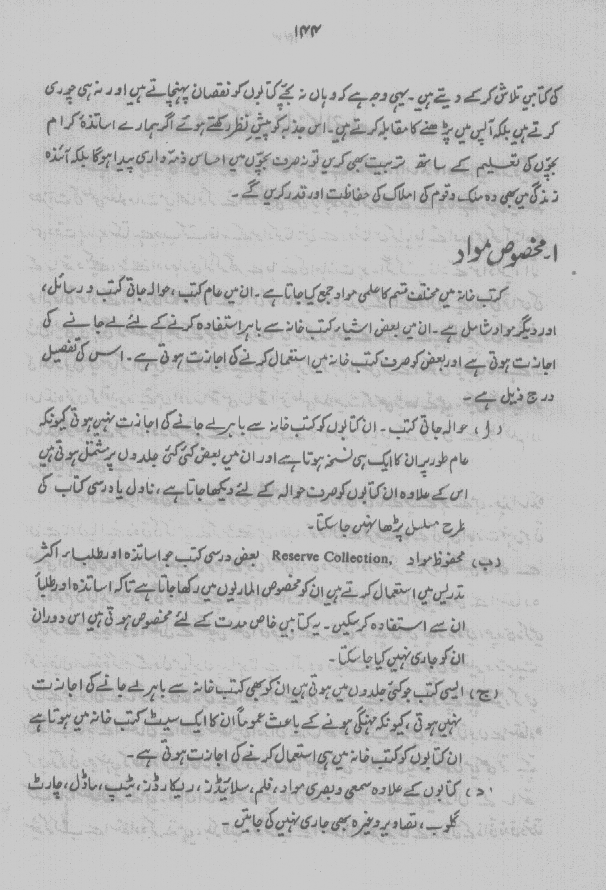 ۱۴۴
کی کتابیں تلاش کرکے دیتے ہیں۔ یہی وجہ ہے کہ وہاں نہ بچے کتابوں کو نقصان پہنچاتے ہیں اور نہ ہی چوری
کرتے ہیں بلکہ آپس میں پڑھنے کا مقابلہ کرتے ہیں۔ اس جذبہ کو پیشِ نظر رکھتے ہوئے اگر ہمارے اساتذہ کرام
بچّوں کی تعلیم کے ساتھ تربیت بھی کریں تو نہ صرف بچّوں میں احساس ذمّہ داری پیدا ہوگا بلکہ آئندہ
زندگی میں بھی وہ ملک و قوم کی املاک کی حفاظت اور قدر کریں گے۔
۱۔ مخصوص مواد
کتب خانہ میں مختلف قسم کا علمی مواد جمع کیا جاتا ہے۔ ان میں عام کتب، حوالہ جاتی کتب و رسائل،
اور دیگر مواد شامل ہے۔ ان میں بعض اشیاء کتب خانہ سے باہر استفادہ کرنے کے لئے لے جانے کی
اجازت ہوتی ہے اور بعض کو صرف کتب خانہ میں استعمال کرنے کی اجازت ہوتی ہے۔ اس کی تفصیل
درج ذیل ہے۔
(ا) حوالہ جاتی کتب۔ ان کتابوں کو کتب خانہ سے باہر لے جانے کی اجازت نہیں ہوتی کیونکہ
عام طور پر ان کا ایک ہی نسخہ ہوتا ہے اور ان میں بعض کئی کئی جلدوں پر مشتمل ہوتی ہیں
اس کے علاوہ ان کتابوں کو صرف حوالہ کے لئے دیکھا جاتا ہے، ناول یا درسی کتاب کی
طرح مسلسل پڑھا نہیں جا سکتا۔
(ب) محفوظ مواد Reserve Collection, بعض درسی کتب جو اساتذہ اور طلباء اکثر
تدریس میں استعمال کرتے ہیں ان کو مخصوص الماریوں میں رکھا جاتا ہے تاکہ اساتذہ اور طلباً
ان سے استفادہ کر سکیں۔ یہ کتابیں خاص مدت کے لئے مخصوص ہوتی ہیں اس دوران
ان کو جاری نہیں کیا جا سکتا۔
(ج) ایسی کتب جو کئی جلدوں میں ہوتی ہیں ان کو بھی کتب خانہ سے باہر لے جانے کی اجازت
نہیں ہوتی، کیونکہ مہنگی ہونے کے باعث عموماً ان کا ایک سیٹ کتب خانہ میں ہوتا ہے
ان کتابوں کو کتب خانہ میں ہی استعمال کرنے کی اجازت ہوتی ہے۔
(د) کتابوں کے علاوہ سمعی و بصری مواد، فلم، سلائیڈز، ریکارڈز، ٹیپ، ماڈل، چارٹ
گلوب، تصاویر وغیرہ بھی جاری نہیں کی جاتیں۔